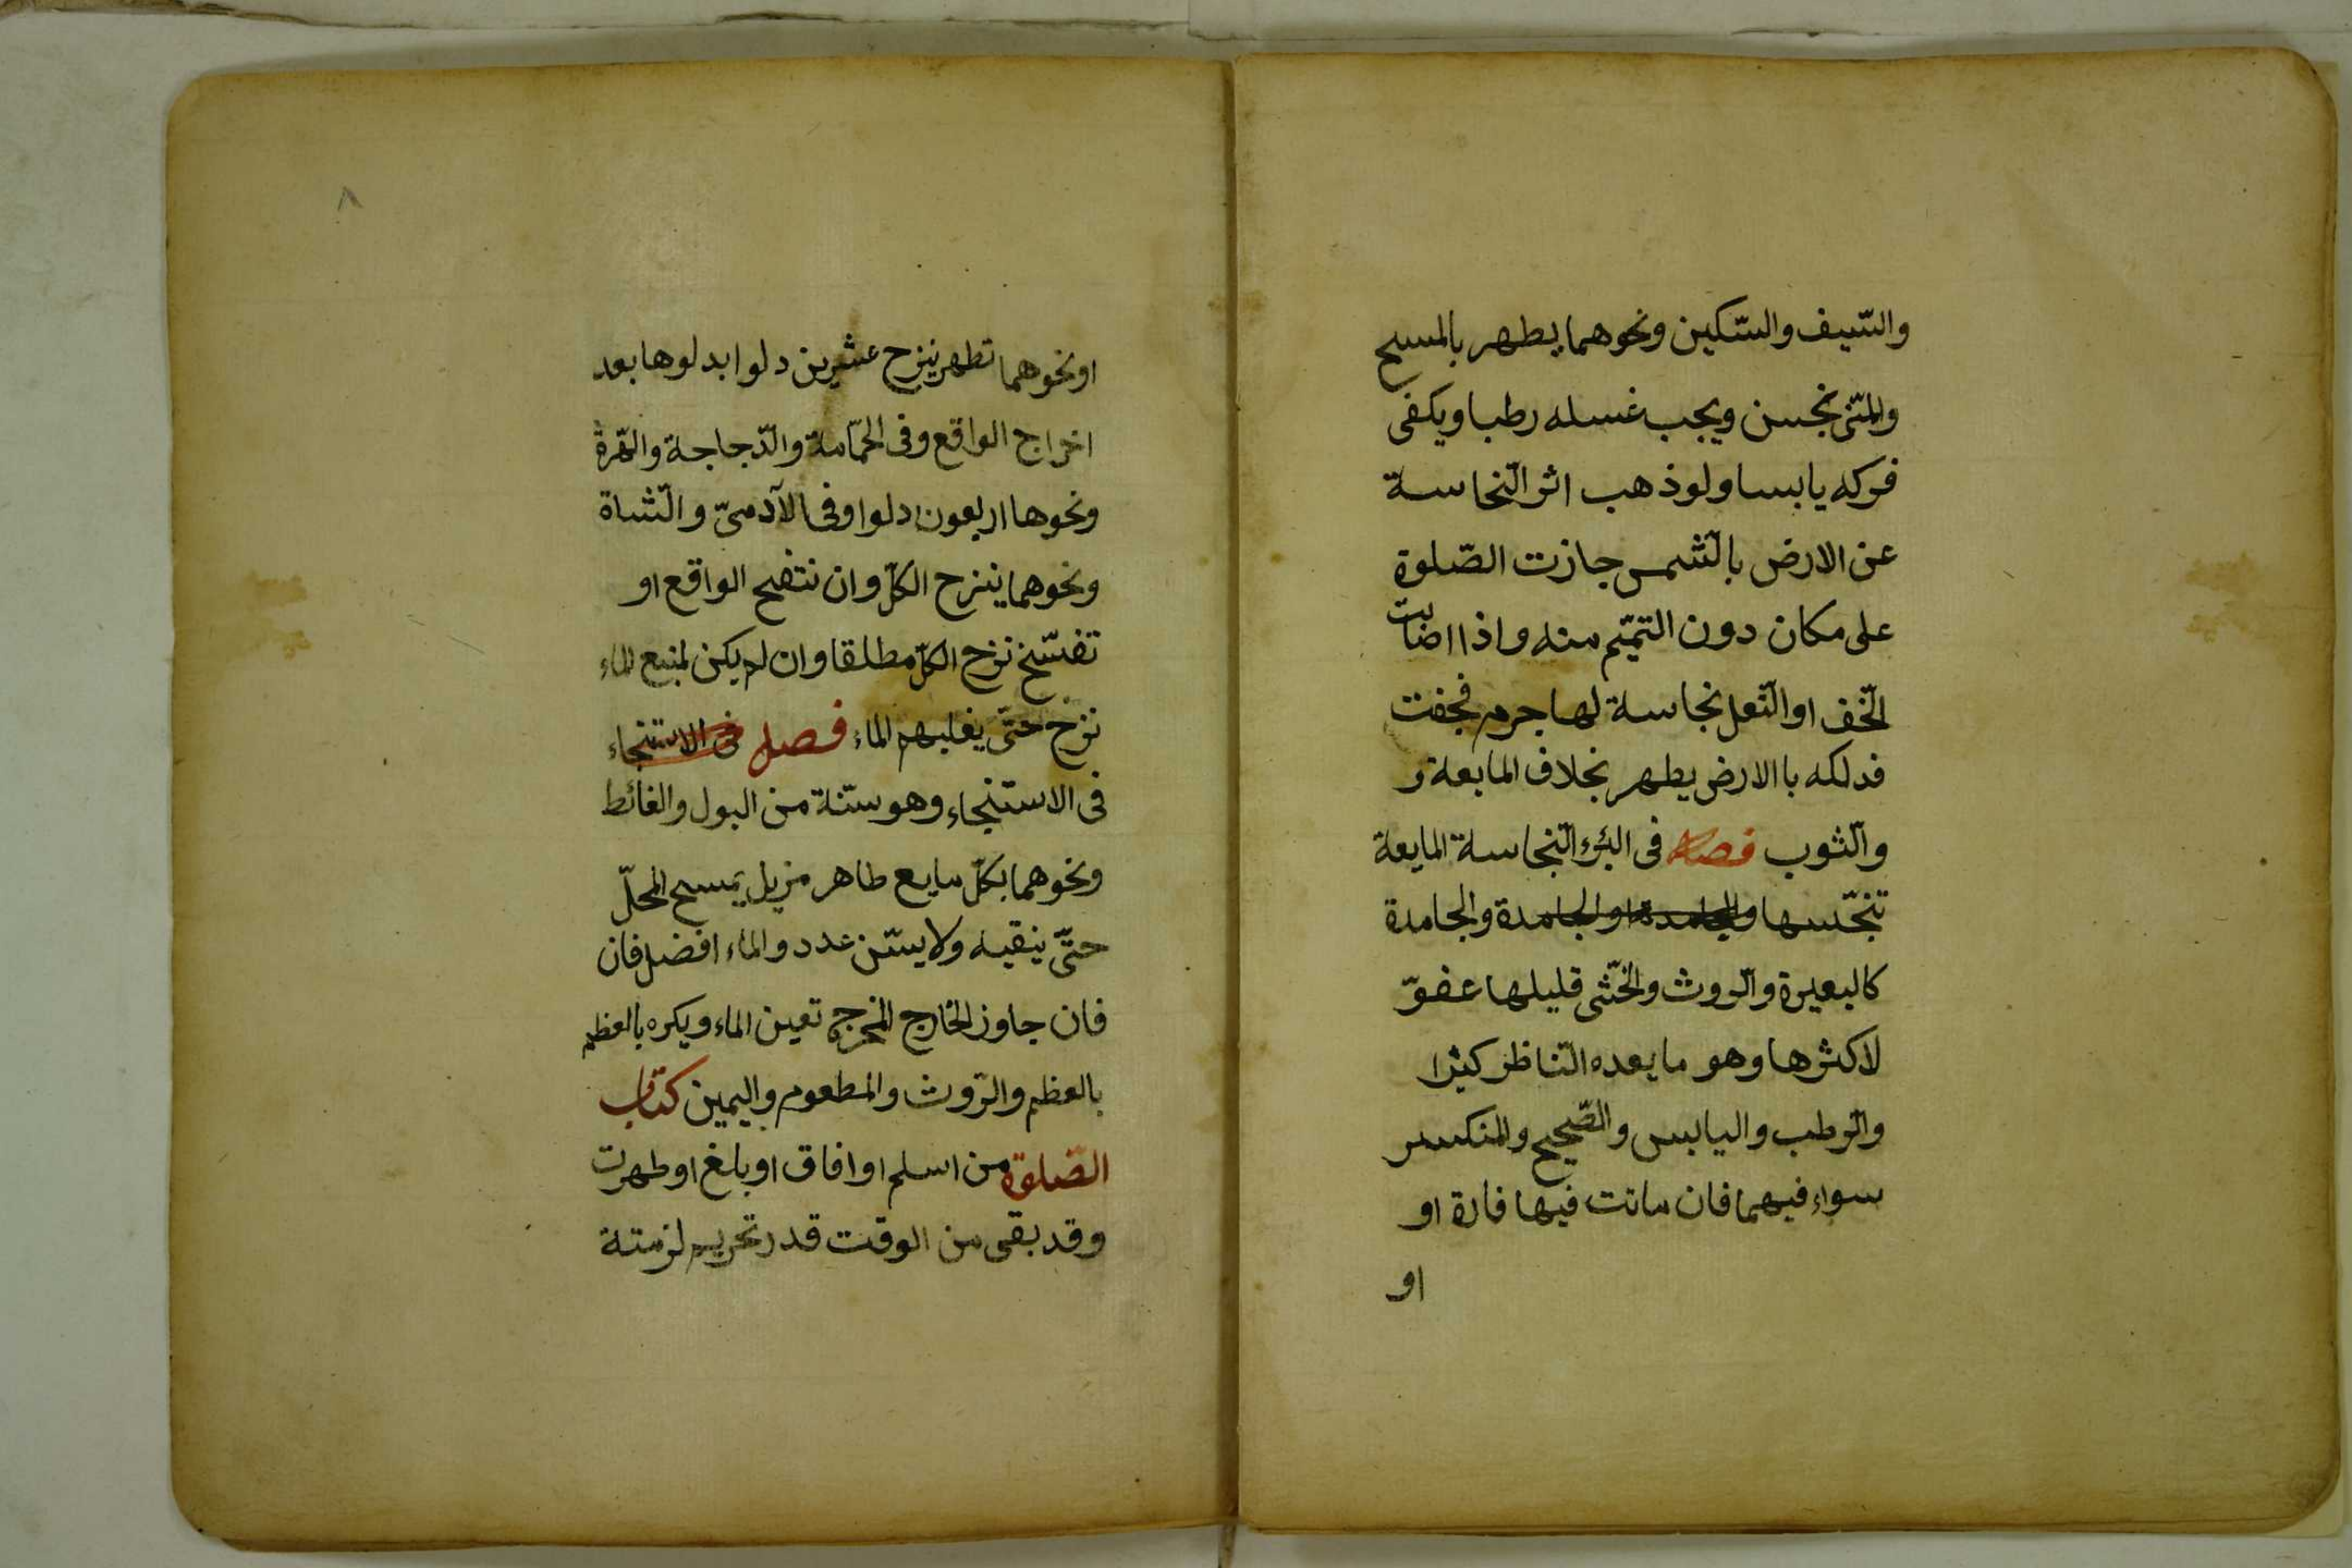 والسّيف والسّكين ونحوهما يطهر بالمسح
والمنّى نجس ويجب غسله رطبا ويكفى
فركه يابسا ولو ذهب اثر النّجاسة
عن الارض بالشّمس جازت الصّلوة
على مكان دون التيمّم منه واذا اصابت
الخّف او النّعل نجاسة لها جرم فجفت
فدلكه باالارض يطهر بخلاف المايعة و
والثّوب فصل فى البئر النّجاسة المايعة
تنجّسها والجامدة او الجامدة والجامدة
كالبعيرة والرّوث والخّثى قليلها عفوّ
لا كثرها وهو ما يعده النّاظر كثيرا
والرّطب واليابس والصّحيح والمنكسر
سواء فيهما فان ماتت فيها فارة او
او
٨
او نحوهما تطهر بنزح عشرين دلوا بدلوها بعد
اخراج الواقع وفى الحمّامة والدّجاجة والهّرة
ونحوها اربعون دلوا وفى الآدمىّ والشّاة
ونحوهما ينزح الكلّ وان نتفخ الواقع او
تفسّخ نزح الكلّ مطلقا وان لم يكن لمنبع الماء
نزح حتّى يغلبهم الماء فصل فى الاستنجاء
فى الاستنجاء وهو سنّة من البول والغائط
ونحوهما بكلّ مايع طاهر مزيل يمسح المحلّ
حتّى ينقيه ولا يسّن عدد والماء افضل فان
فان جاوز الخارج المخرج تعين الماء ويكره بالعظم
بالعظم والرّوث والمطعوم واليمين كتاب
الصّلوة من اسلم او افاق او بلغ او طهرت
وقد بقى من الوقت قدر تحريم لزمتة